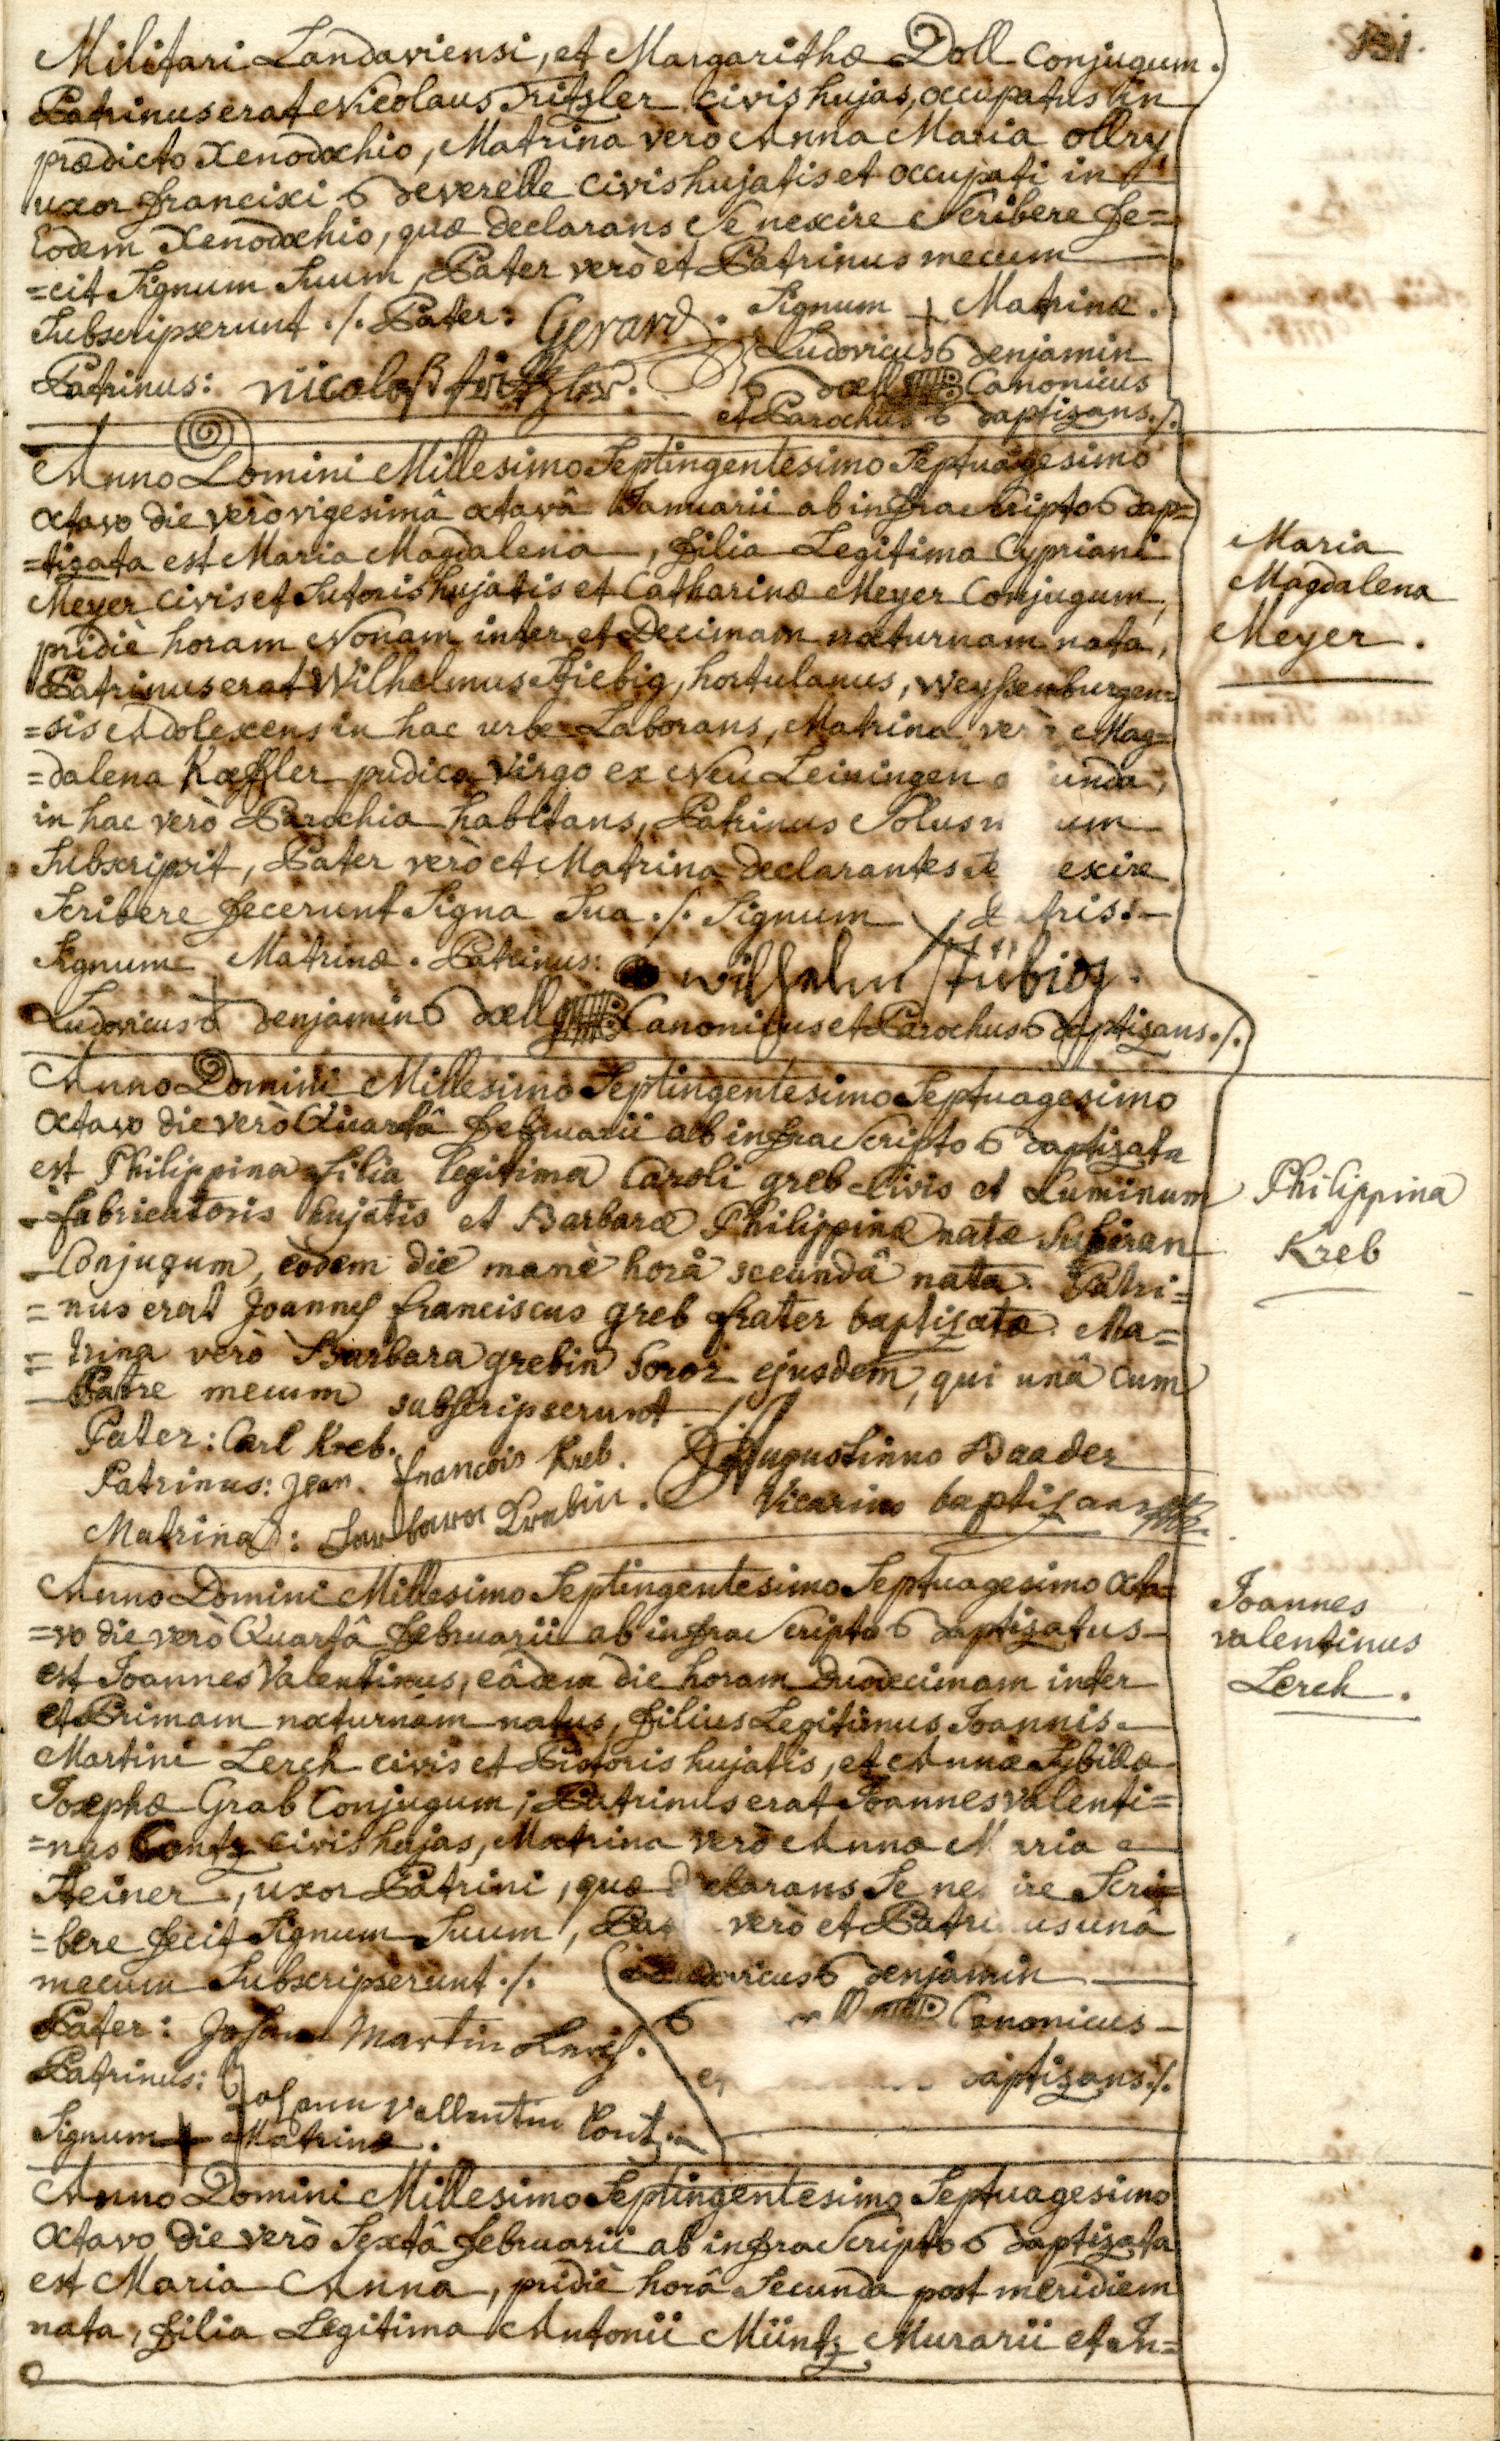 131.
Militari Landaviensi, et Margarithæ Doll Conjugum.
Patrinus erat Nicolaus Tritzler civis hujas, occupatus in
prædicto Xenodochio, Matrina verò Anna Maria ollry
uxor francisci Beverelle Civis hujatis et occupati in
Eodem Xenodochio, quæ declarans Se nescire Scribere fe=
=cit Signum Suum, Pater verò et Patrinus mecum
Subscripserunt ./. Pater: Gerard. Signum + Matrinæ.
Ludovicus Benjamin
Patrinus: nicolaß
Bœll Canonicus
et Parochus Baptizans ./.
Anno Domini Millesimo Septingentesimo Septuagesimo
octavo die verò vigesimâ octavâ Januarii ab infra Scripto Bap=
=tizata est Maria Magdalena, filia Legitima Cypriani
Meyer Civis et Sutoris hujatis et Catharinæ Meyer Conjugum,
pridiè horam Nonam inter et Decimam nocturnam nata,
Patrinus erat Wilhelmus Stiebig, hortulanus, Weyssenburgen=
=sis Adolescens in hac urbe Laborans, Matrina ver Mag=
=dalena Kœffler pudica Virgo ex Neu Leiningen o iunda,
in hac verò Parochia habitans, Patrinus Solus m um
Subscripsit, Pater verò et Matrina declarantes Se escire
Scribere fecerunt Signa Sua ./. Signum Patris:
Signum Matrinæ. Patrinus: wilhelm Stübig.
Ludovicus Benjamin Bœll Canonicus et Parochus Baptizans ./.
Maria
Magdalena
Meyer.
Anno Domini Millesimo Septingentesimo Septuagesimo
octavo die verò Quartâ februarii ab infra Scripto Baptizata
est Philippina filia legitima Caroli greb Civis et Luminum
fabricatoris hujatis et Barbaræ Philippinæ natæ
Conjugum, eodem die manè horâ secundâ nata. Patri=
=nus erat Joannes franciscus greb frater baptizatæ. Ma=
=trina verò Barbara grebin Soror ejusdem, qui unâ cum
Patre mecum subscripserunt ./.
Pater: Carl Kreb.
Patrinus: Jean françois Kreb. Augustinus Baader
Matrina: Barbara Krebin. Vicarius baptizans
Philippina
Kreb
Anno Domini Millesimo Septingentesimo Septuagesimo octa=
=vo die verò Quartâ februarii ab infra Scripto Baptizatus
est Joannes Valentinus, eâdem die horam duodecimam inter
et Primam nocturnam natus, filius Legitimus Joannis
Martini Lerch civis et Pistoris hujatis, et Annæ Sybillæ
Josephæ Grab Conjugum; Patrinus erat Joannes valenti=
=nus Contz civis hujas, Matrina verò Anna M aria
Steiner, uxor Patrini, quæ declarans Se nes ire Scri=
=bere fecit Signum Suum, Pa verò et Patri us unâ
mecum Subscripserunt ./. Ludovicus Benjamin
B œll Canonicus
Pater: Johan Martin Lerch.
Patrinus: et Baptizans ./.
Johann Vallentin Contz
Signum + Matrinæ.
Joannes
valentinus
Lerch.
Anno Domini Millesimo Septingentesimo Septuagesimo
octavo die verò Sextâ februarii ab infra Scripto Baptizata
est Maria Anna, pridiè horâ Secunda post meridiem
nata, filia Legitima Antonii Müntz Murarii et In=